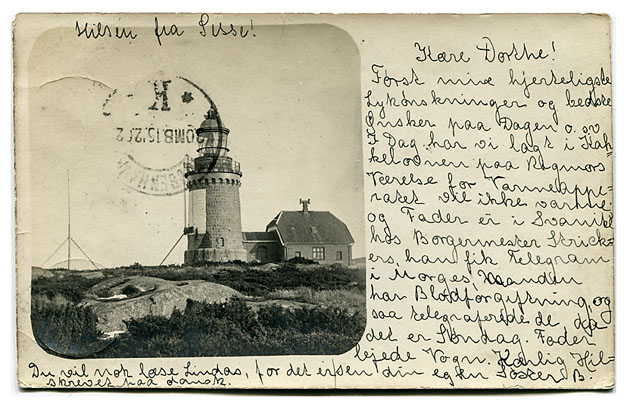 Hilsen fra Sisse!
Kære Dorthe!
Först mine hjerteligste
Lykönskninger og bedste
Ønsker paa Dagen o.sv
I Dag har vi lagt i Kak-
kelovnen paa Regnors
Værelse for Varmeappe-
ratet vil ikke varme
og Fader er i Svanike
hos Borgermester Strick-
ers, han fik Telegram
i Morges. Manden
har Blodforgiftning, og
saa telegraferede de, da
det er Söndag. Fader
lejede Vogn. Kærlig Hil-
sen din egen Söster B.
Du vil nok læse Lindas, for det er
skrevet paa dansk.
K